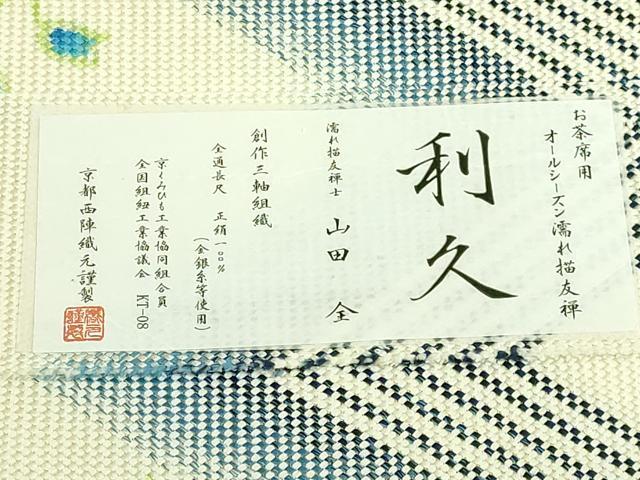 お茶席用
オールシーズン濡れ描友禅
利久
濡れ描友禅士 山田 全
創作三軸組織
全通長尺 正絹一〇〇%
(金銀糸等使用)
京くみひも工業協同組合員
全国組紐工業協議会 KT-08
京都西陣織元謹製